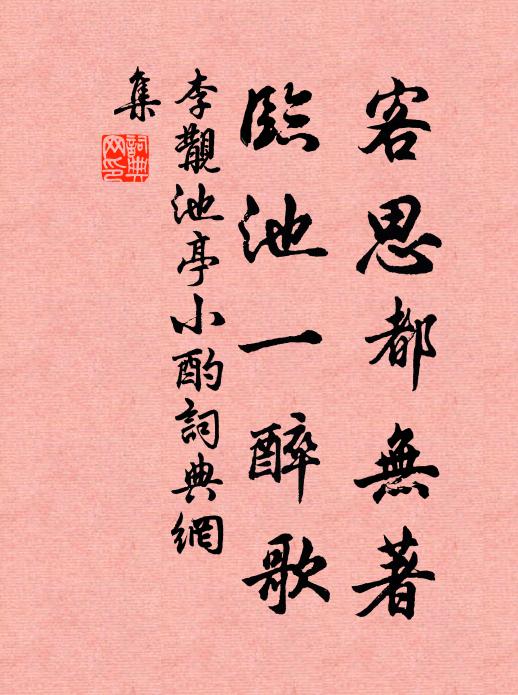 客思都無著
臨池一醉歌
李觀池亭小酌詞典網
集
詞典
网印